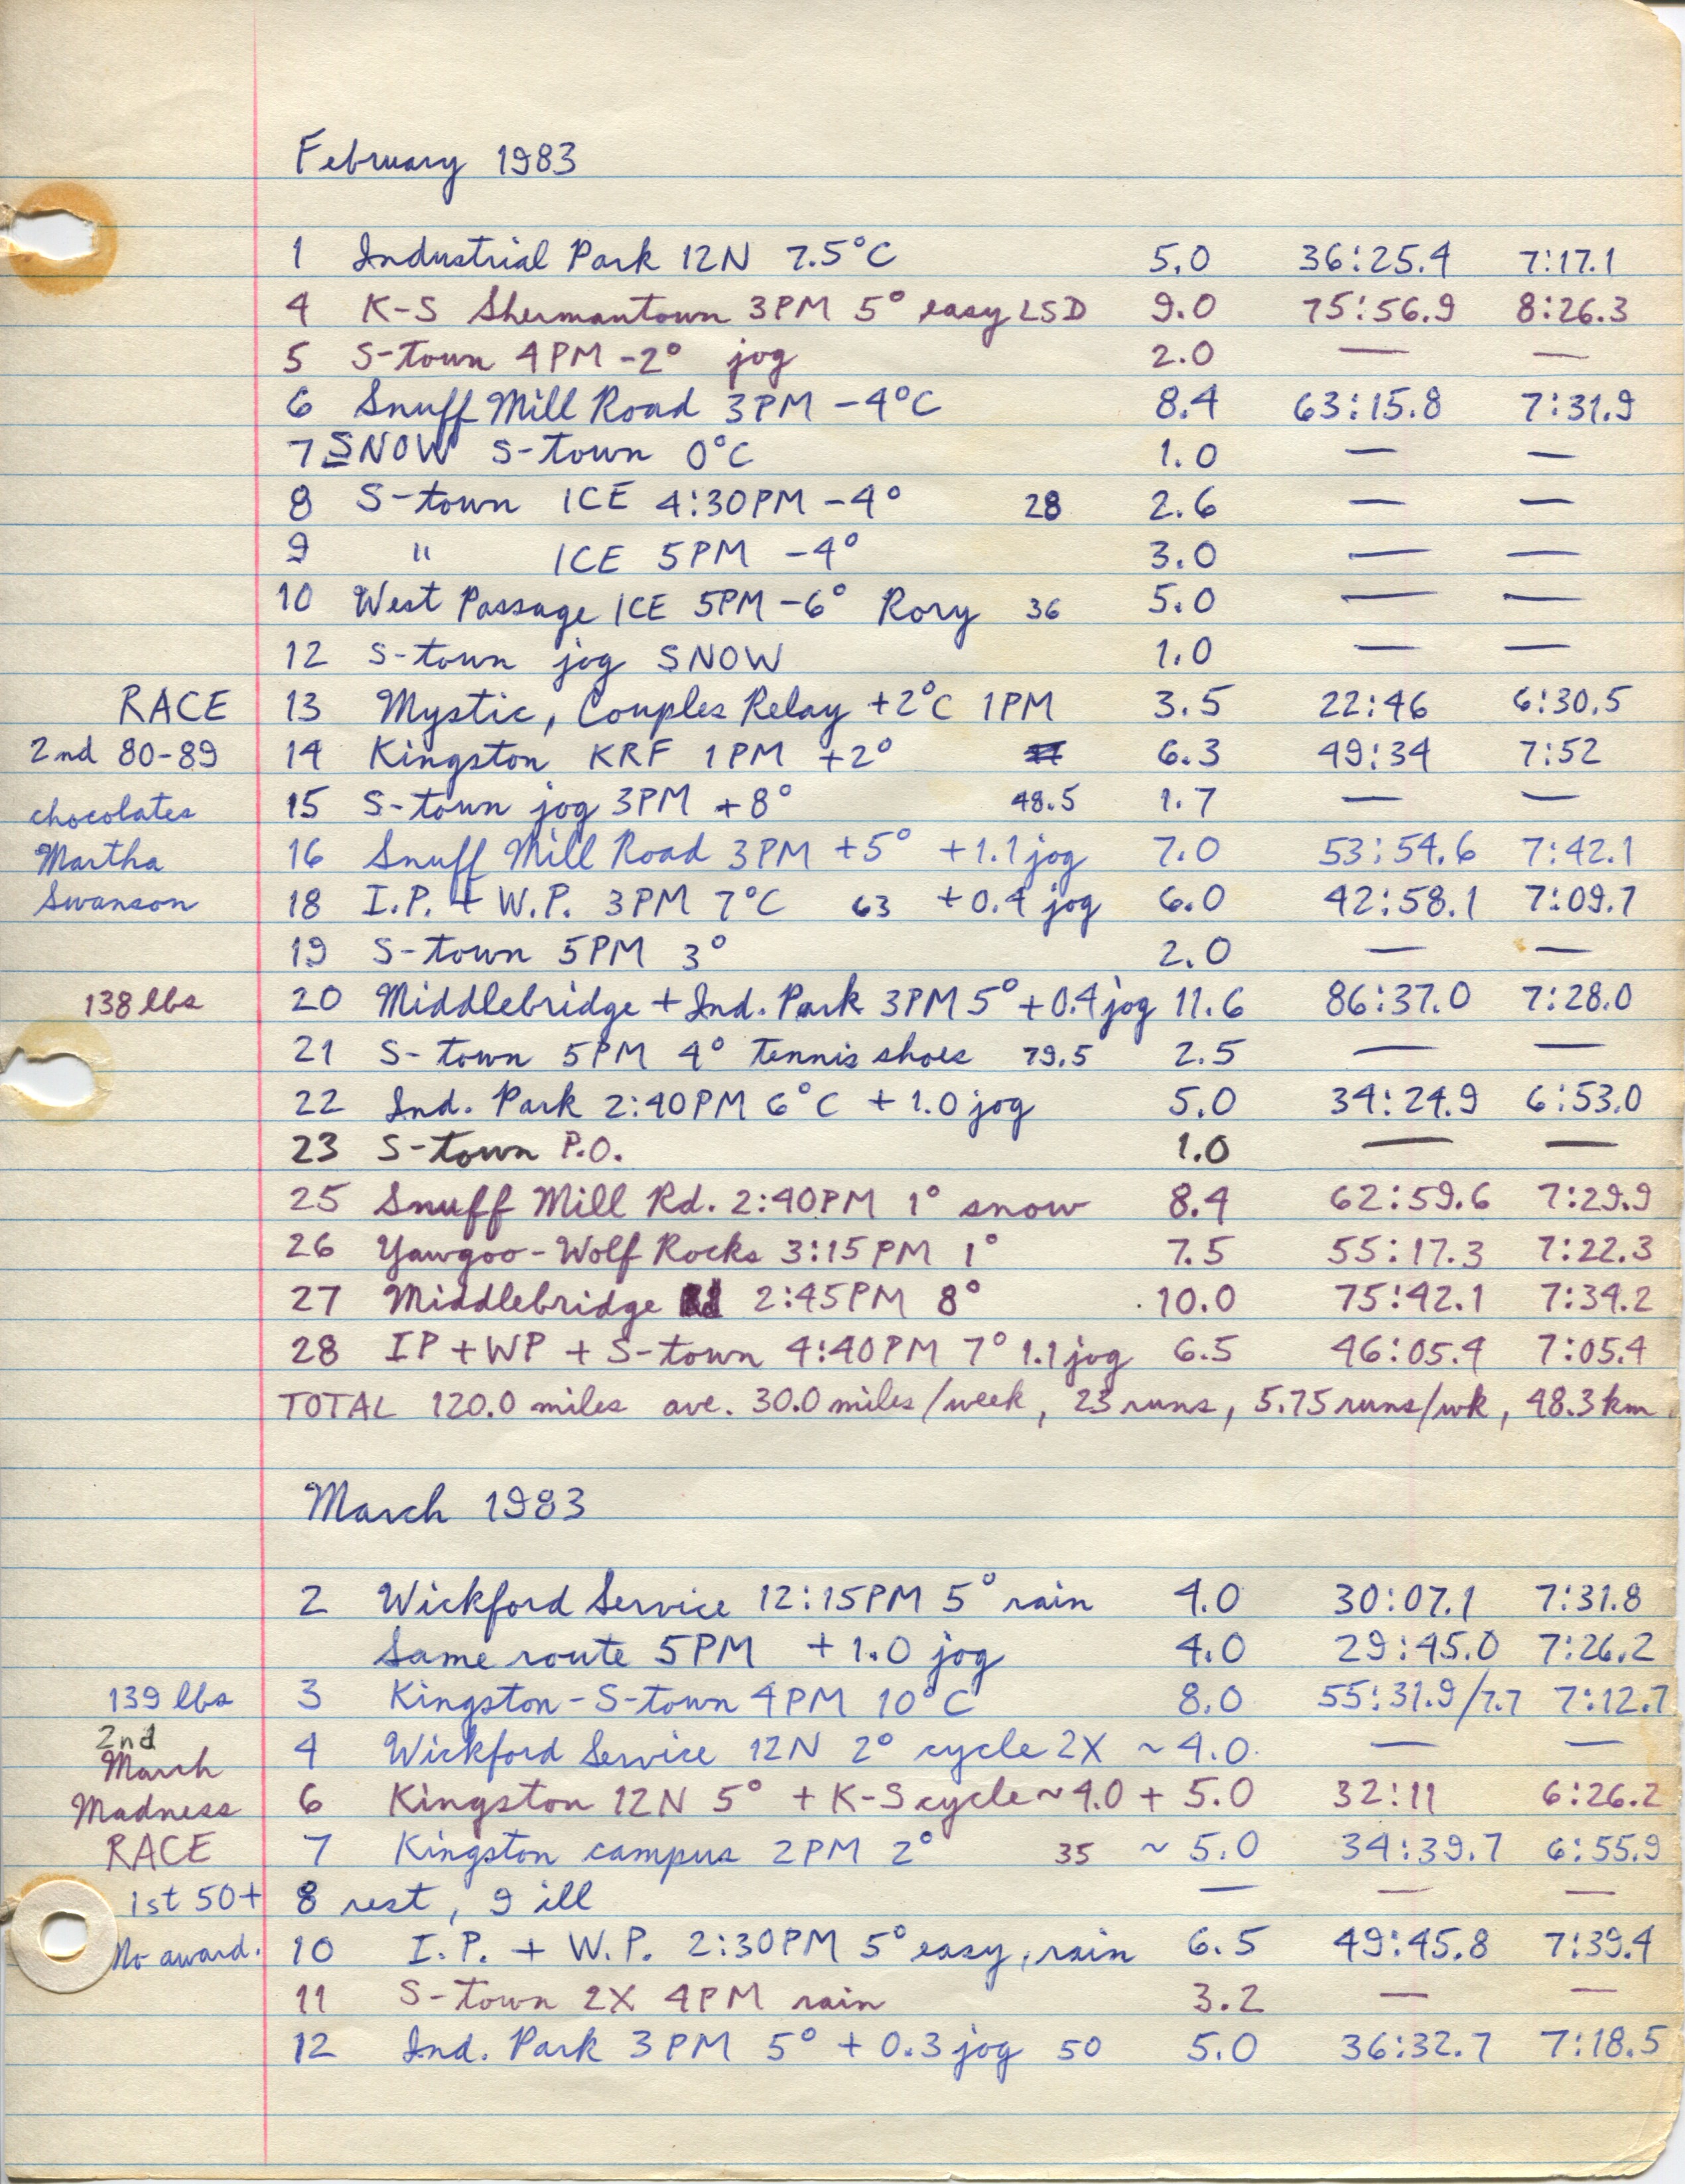 February 1983
1 Industrial Park 12N 7.5°C 5.0 36:25.4 7:17.1
4 K-S Shermantown 3PM 5° easy LSD 9.0 75:56.9 8:26.3
5 S-town 4PM -2° jog 2.0 — —
6 Snuff Mill Road 3PM -4°C 8.4 63:15.8 7:31.9
7 SNOW S-town 0°C 1.0 — —
8 S-town ICE 4:30PM -4° 28 2.6 — —
9 " ICE 5PM -4° 3.0 — —
10 West Passage ICE 5PM -6° Rory 36 5.0 — —
12 S-town jog SNOW 1.0 — —
RACE 13 Mystic, Couples Relay +2°C 1PM 3.5 22:46 6:30.5
2nd 80-89 14 Kingston KRF 1PM +2° 6.3 49:34 7:52
chocolates 15 S-town jog 3PM +8° 48.5 1.7 — —
Martha 16 Snuff Mill Road 3PM +5° +1.1 jog 7.0 53:54.6 7:42.1
Swanson 18 I.P. + W.P. 3PM 7°C 63 +0.4 jog 6.0 42:58.1 7:09.7
19 S-town 5PM 3° 2.0 — —
138 lbs 20 Middlebridge + Ind. Park 3PM 5° +0.4 jog 11.6 86:37.0 7:28.0
21 S-town 5PM 4° tennis shoes 79.5 2.5 — —
22 Ind. Park 2:40PM 6°C + 1.0 jog 5.0 34:24.9 6:53.0
23 S-town P.O. 1.0 — —
25 Snuff Mill Rd. 2:40PM 1° snow 8.4 62:59.6 7:29.9
26 Yawgoo-Wolf Rocks 3:15PM 1° 7.5 55:17.3 7:22.3
27 Middlebridge 2:45PM 8° 10.0 75:42.1 7:34.2
28 IP + WP + S-town 4:40PM 7° 1.1 jog 6.5 46:05.4 7:05.4
TOTAL 120.0 miles ave. 30.0 miles/week, 23 runs, 5.75 runs/wk, 48.3 km
March 1983
2 Wickford Service 12:15PM 5° rain 4.0 30:07.1 7:31.8
Same route 5PM + 1.0 jog 4.0 29:45.0 7:26.2
139 lbs 3 Kingston-S-town 4PM 10°C 8.0 55:31.9/7.7 7:12.7
2nd
March 4 Wickford Service 12N 2° cycle 2X ~ 4.0 — —
Madness 6 Kingston 12N 5° + K-S cycle ~4.0 + 5.0 32:11 6:26.2
RACE 7 Kingston campus 2PM 2° 35 ~ 5.0 34:39.7 6:55.9
1st 50+ 8 rest, 9 ill — — —
No award. 10 I.P. + W.P. 2:30PM 5° easy, rain 6.5 49:45.8 7:39.4
11 S-town 2X 4PM rain 3.2 — —
12 Ind. Park 3PM 5° + 0.3 jog 50 5.0 36:32.7 7:18.5